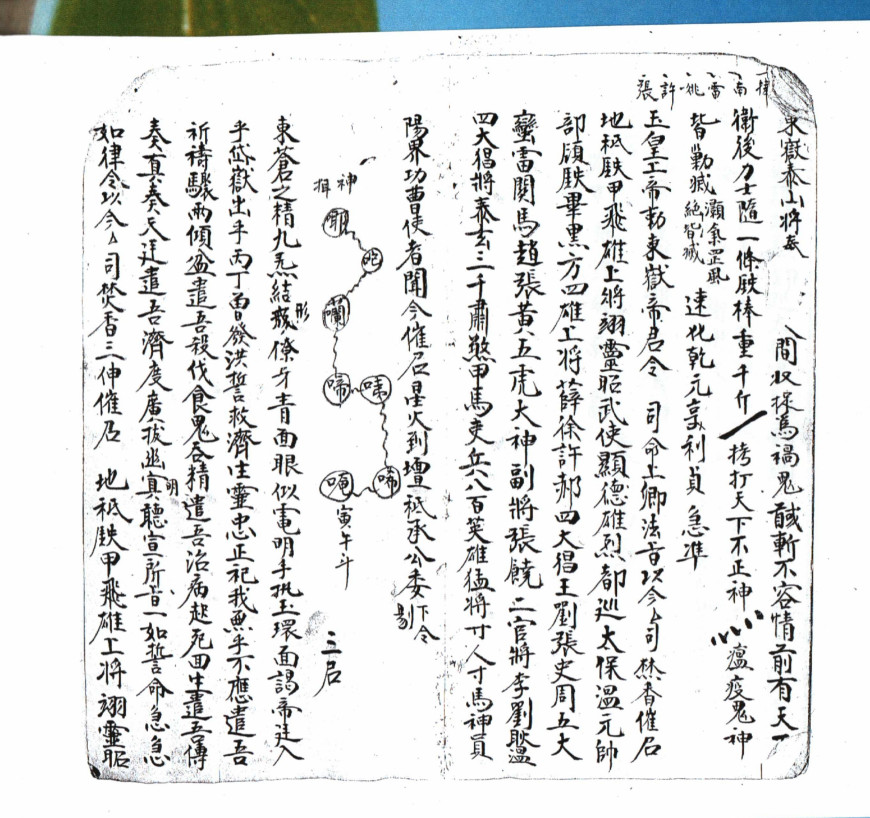 律 南 雷 姚 許 張
東嶽泰山將
間收採為禍鬼誠斬不容情前有天丁
衛後力士隨一條鉄棒重千斤
拷打天下不正神
瘟疫鬼神
皆勦滅
灝氣罡風
絕皆滅
速化乾元亨利貞
急准
玉皇上帝勅東嶽帝君令
司命上卿法旨以今厶司焚香催召
地祇鉄甲飛雄上將翊靈昭武使顯德雄烈都巡太保溫元帥
部領鉄畢黑方四雄上將薛徐許郝四大猖王劉張史周五大
蠻雷関馬趙張黃五虎大神副將張饒二官將李劉
四大猖將泰玄三千肅煞甲馬吏兵八百英雄猛將寸人寸馬神員
陽界功曹使者聞今催召星火到壇祗承公委
下令
神
啼
啼
寅午斗
三召
東蒼之精九炁結形獠牙青面眼似電明手執玉環面謁帝廷入
乎岱嶽出乎丙丁曾發洪誓救濟生靈忠正祀我無乎不應遣吾
祈禱驟雨傾盆遣吾殺伐食鬼吞精遣吾治病起死回生遣吾傳
奏真奏天廷遣吾濟度廣拔幽冥聽宣所旨一如誓命急急
明
如律令以今厶司焚香三伸催召
地祇鉄甲飛雄上將翊靈昭